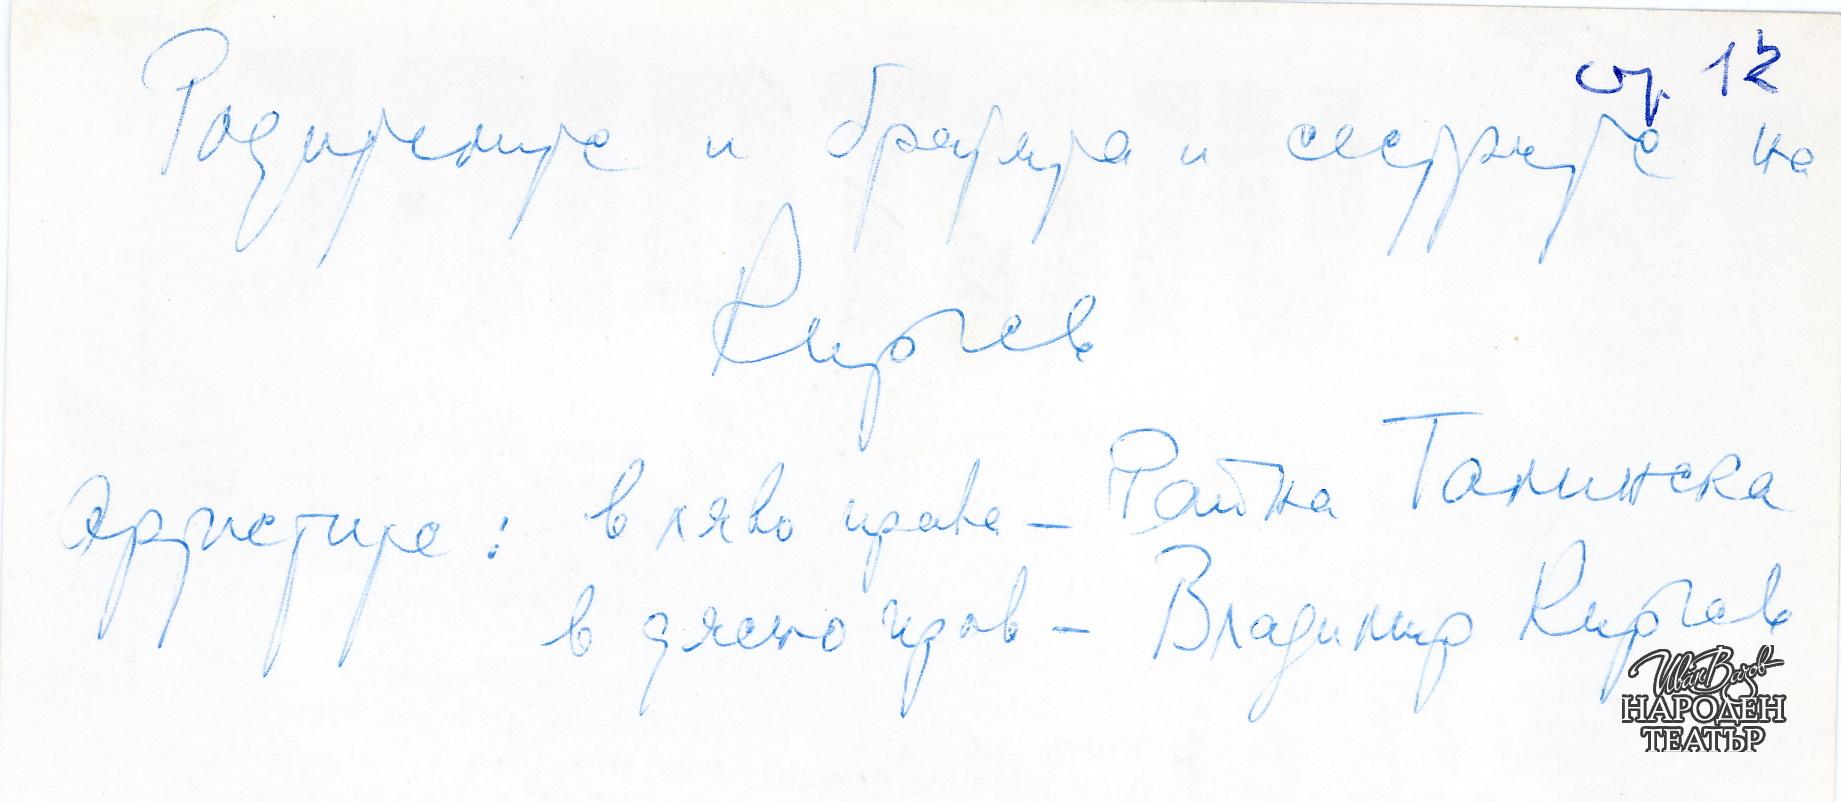 стр. 12
Родителите и братята и сестрите на
Кирчев
Артистите: в ляво права - Райна Талинска
в дясно прав - Владимир Кирчев
Иван Вазов
НАРОДЕН
ТЕАТЪР